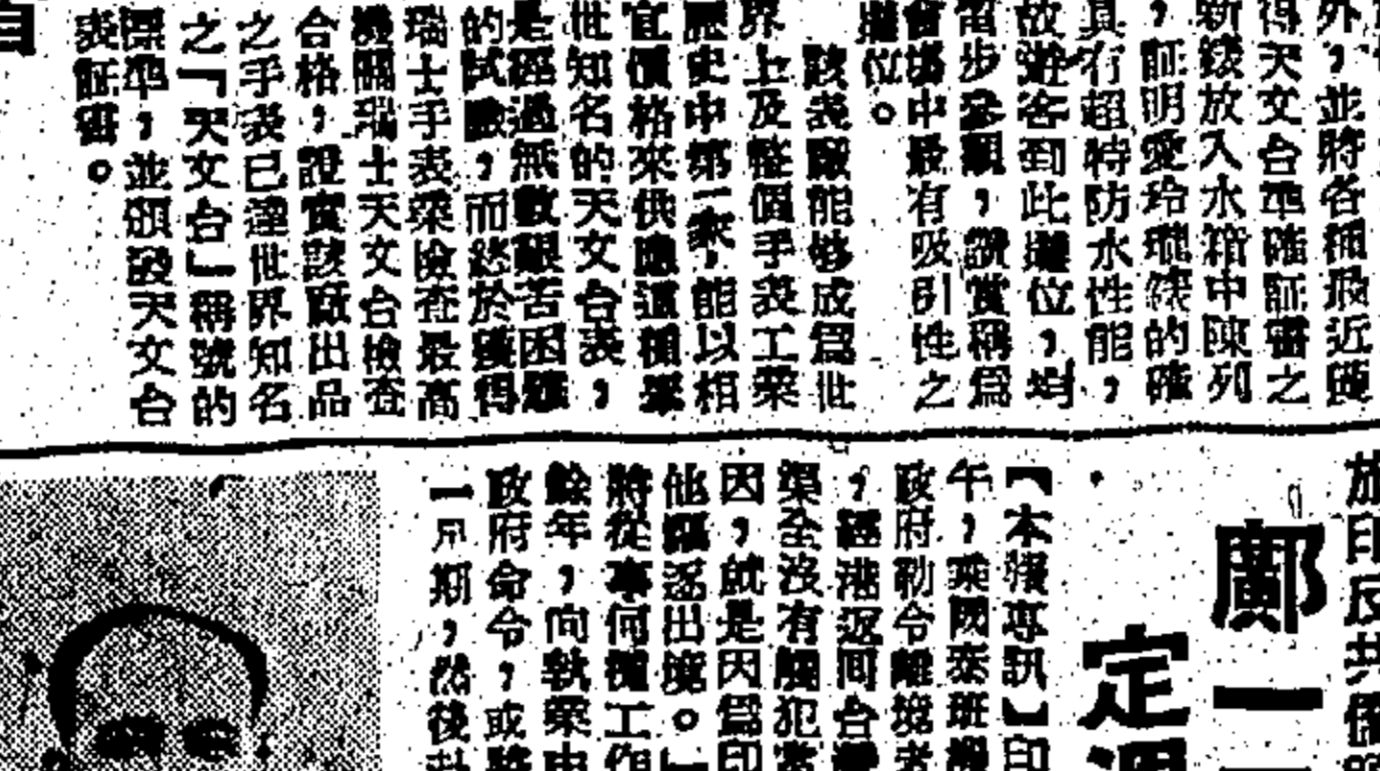 外，並將各種最近獲
得天文台準確証書之
新錶放入水箱中陳列
，証明愛玲瓏錶的確
具有超特防水性能，
故遊客到此攤位，均
留步參觀，讚賞稱爲
會塲中最有吸引性之
攤位。
該表廠能够成爲世
界上及整個手表工業
歷史中第一家，能以相
宜價格來供應這種舉
世知名的天文台表，
是經過無數艱苦困難
的試驗，而終於獲得
瑞士手表業檢查最高
機關瑞士天文台檢查
合格，證實該廠出品
之手表已達世界知名
之『天文台』稱號的
標準，並頒發天文台
表証書。
旅印反共僑
鄺一
定
【本報專訊】印
午，乘國泰班機
政府勒令離境者
，經港返回台灣
渠全沒有觸犯
因，就是因爲印
他驅逐出境。」
將從事何種工作
餘年，向執業中
政府命令，或將
一月期，然後赴